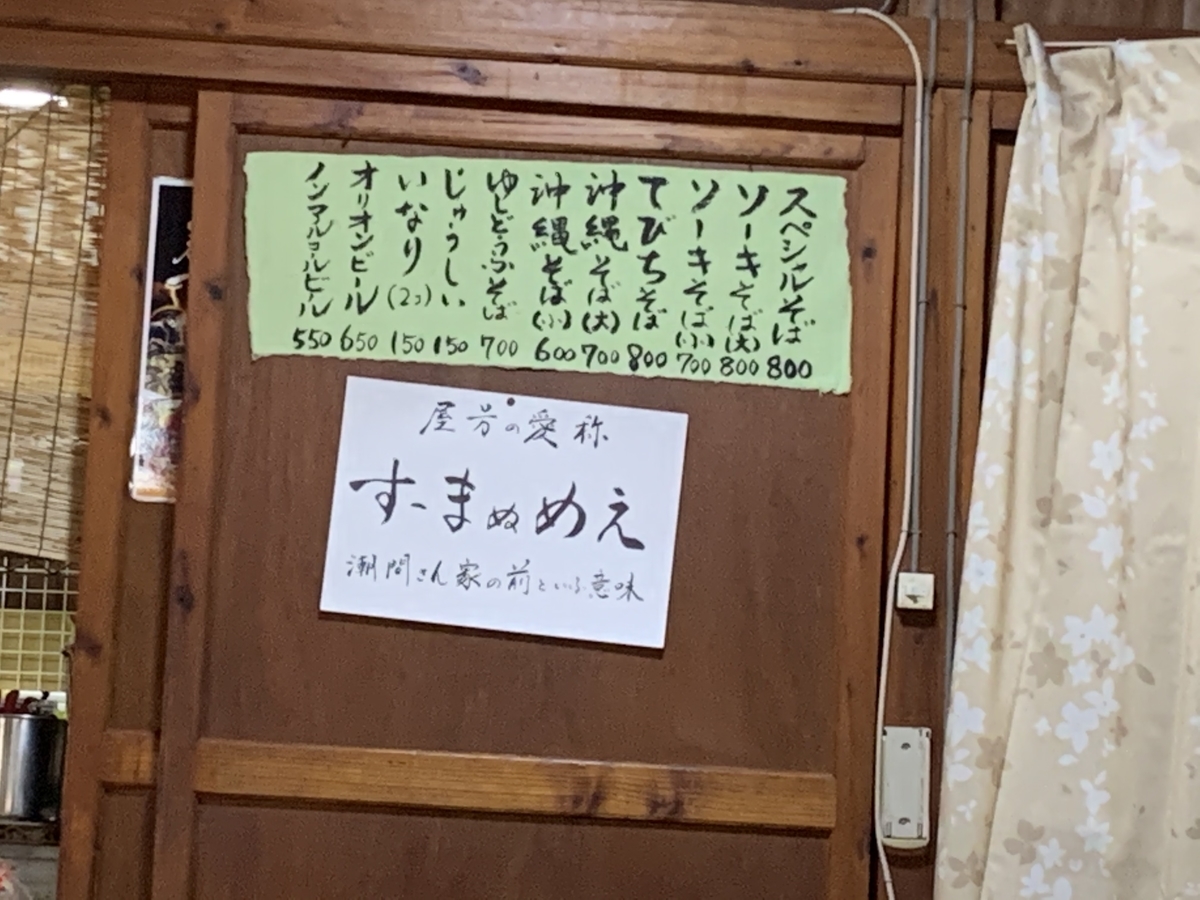 スペシャルそば 800
ソーキそば(大) 800
ソーキそば(小) 700
てびちそば 800
沖縄そば(大) 700
沖縄そば(小) 600
ゆしどうふそば 700
じゅうしい 150
いなり(2コ) 150
オリオンビール 650
ノンアルコールビール 550
屋号の愛称
すーまぬめえ
潮間さん家の前という意味